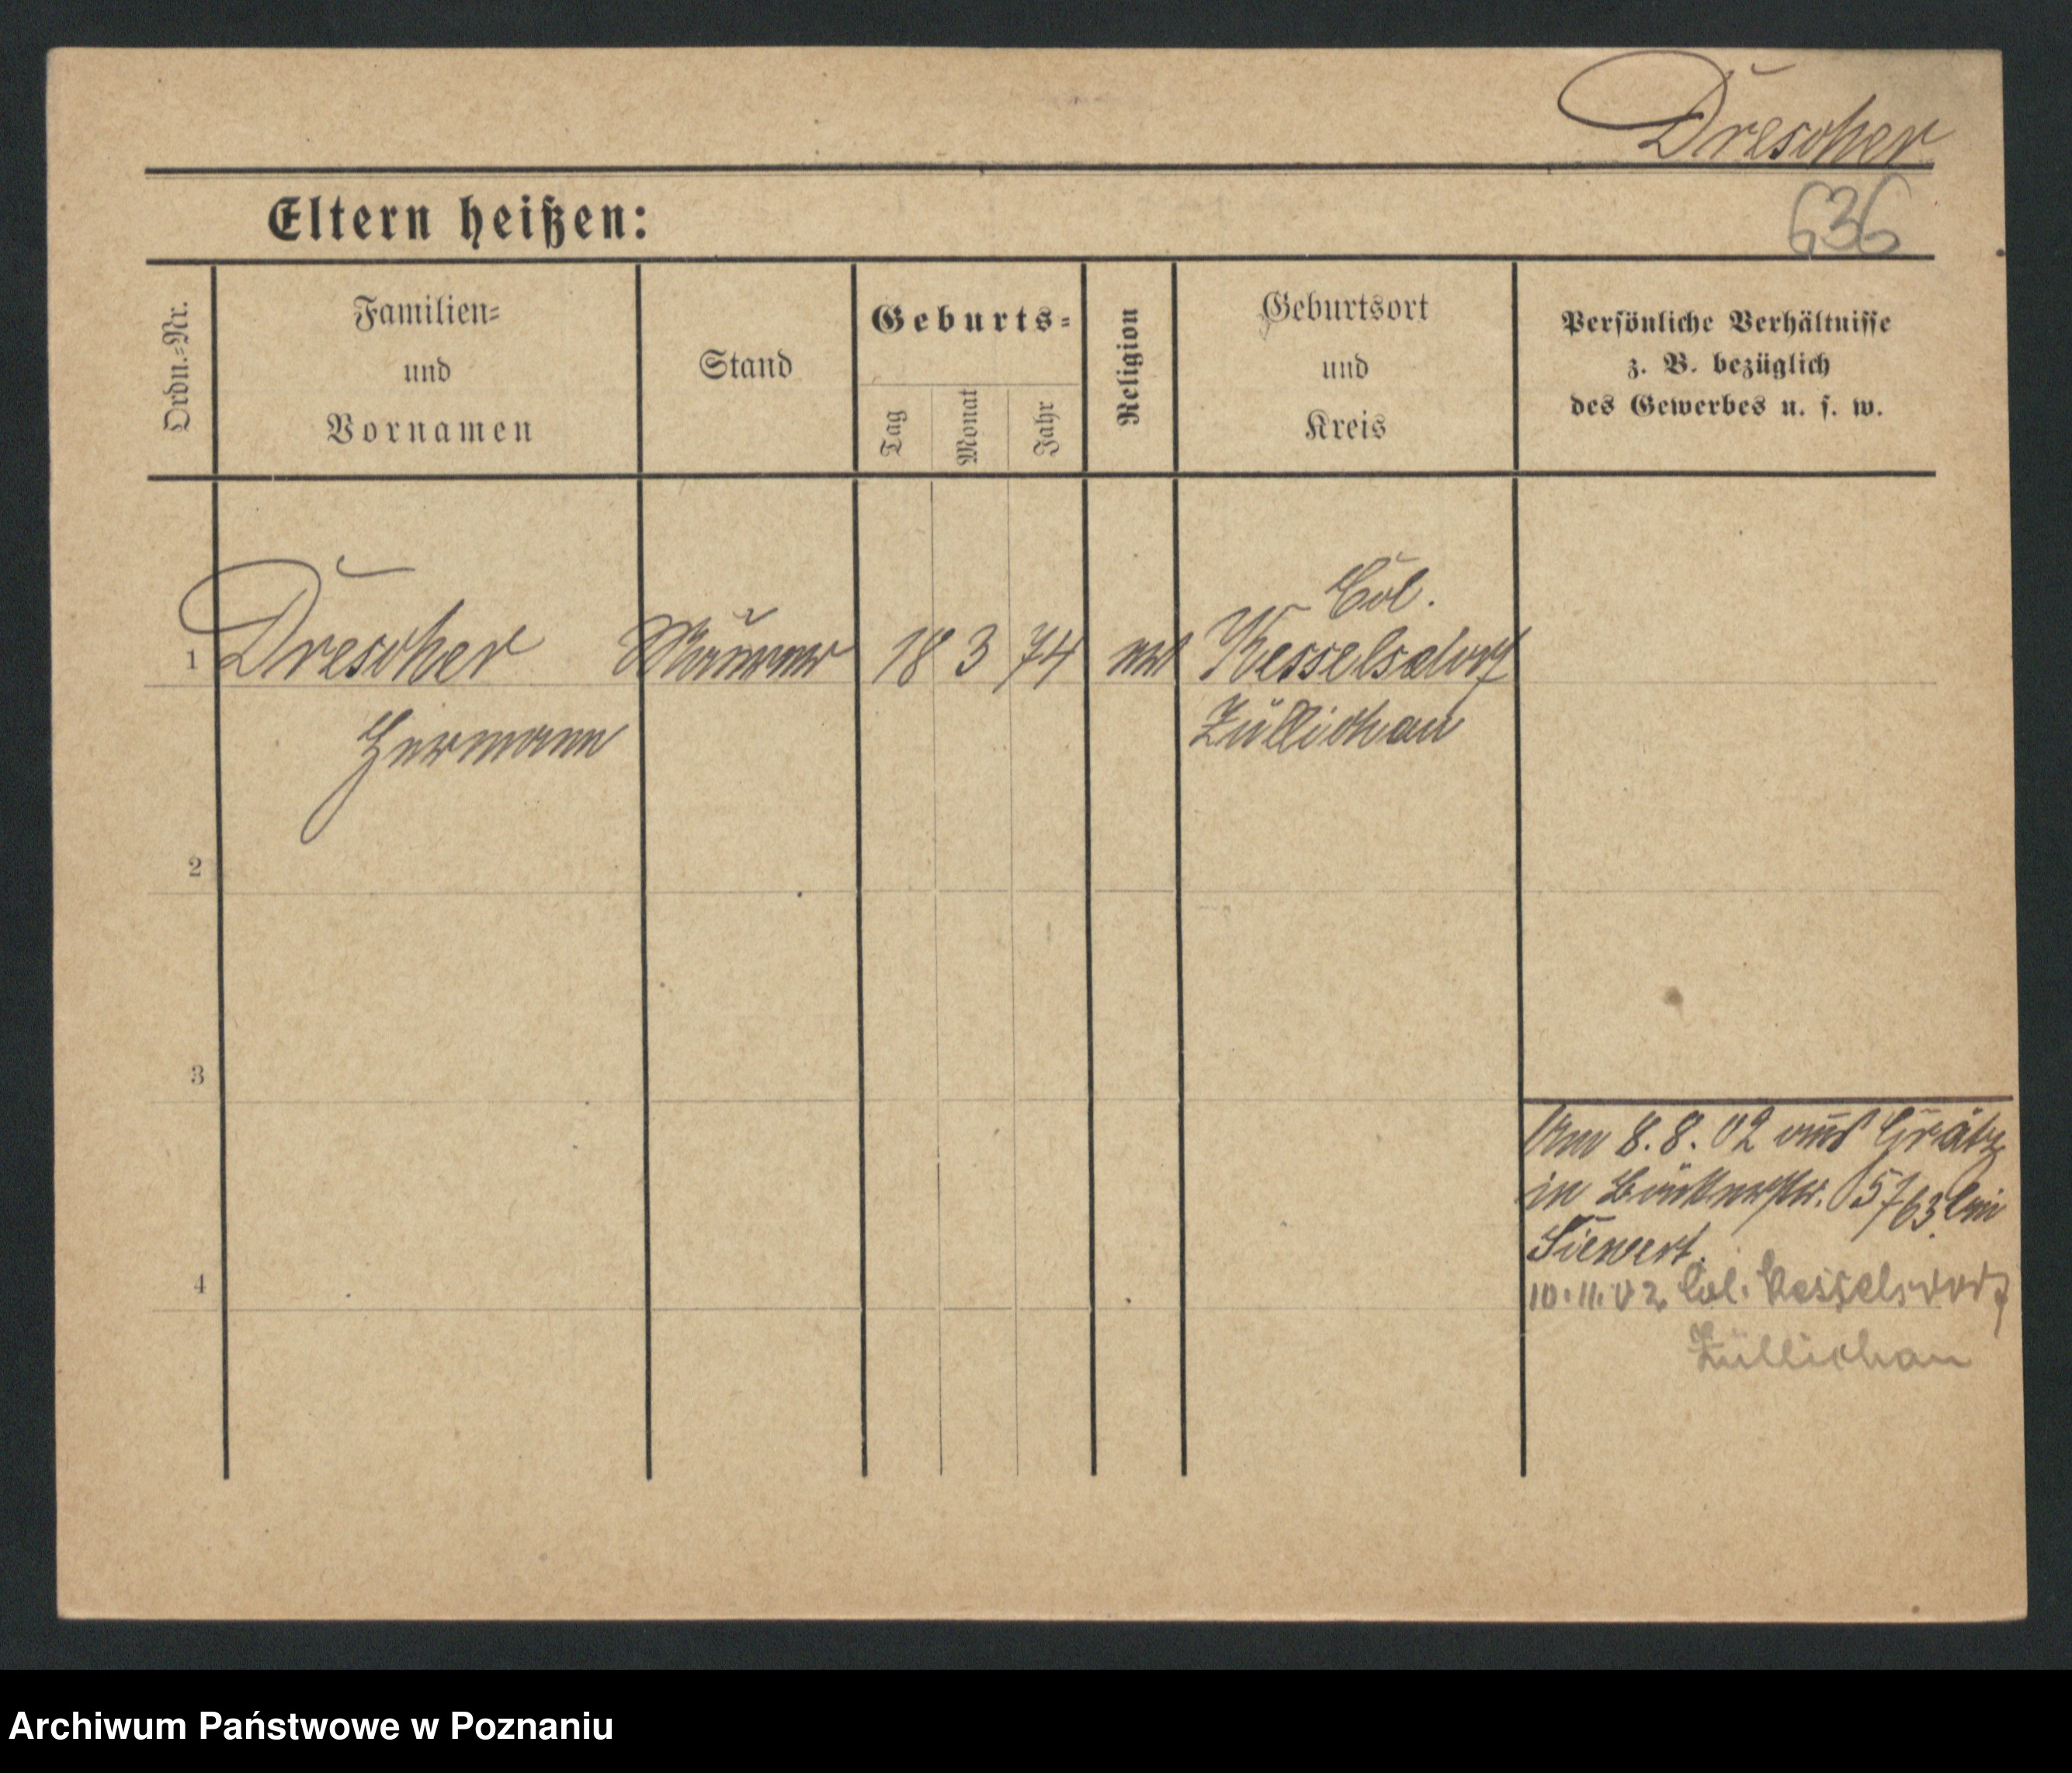 Drescher
Eltern heißen:
636
Ordn.-Nr.
Familien-
und
Vornamen
Stand
Geburts-
Tag
Monat
Jahr
Religion
Geburtsort
und
Kreis
Persönliche Verhältnisse
z. B. bezüglich
des Gewerbes u. s. w.
Col.
1 Drescher Maurer 18 3 74 ev Kesselsdorf
Hermann Züllichau
2
3
Am 8.8.02 aus Grätz
in 57/63 bei
Siewert.
4
10.11.02 Col. Kesselsdorf
Züllichau
Archiwum Państwowe w Poznaniu